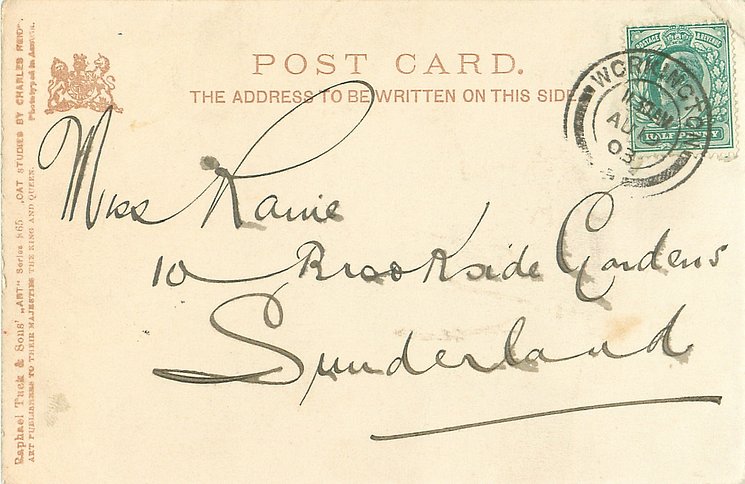 POST CARD.
THE ADDRESS TO BE WRITTEN ON THIS SIDE
Miss Ranie
10 Brookside Gardens
Sunderland
WORKINGTON
AU
03
POSTAGE & REVENUE
HALF PENNY
Raphael Tuck & Sons' „ART" Series 865 „CAT STUDIES BY CHARLES REID". Phototyped in
ART PUBLISHERS TO THEIR MAJESTIES THE KING AND QUEEN.